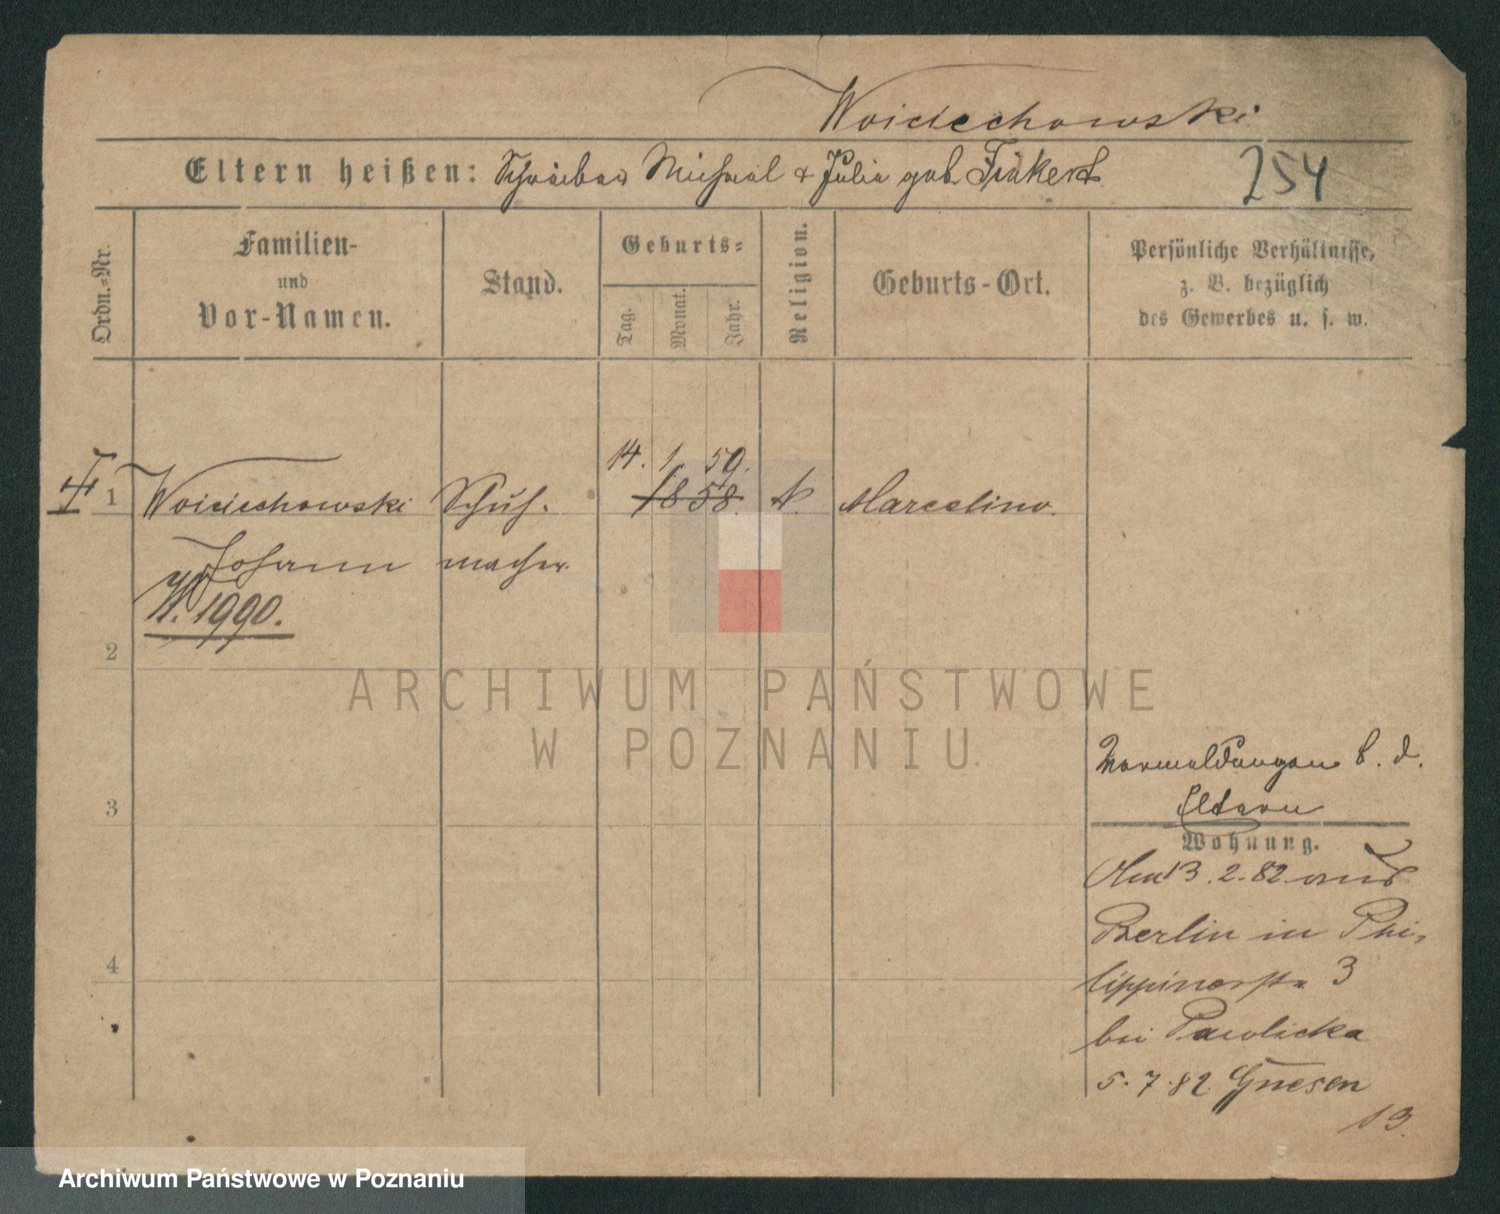 Woiciechowski
Eltern heißen: Schreiber Michael & Julia geb. Finkert
254
Ordn.-Nr.
Familien-
und
Vor-Namen.
Stand.
Geburts-
Tag.
Monat.
Jahr.
Religion.
Geburts-Ort.
Persönliche Verhältnisse,
z. B. bezüglich
des Gewerbes u. s. w.
14. 1. 59.
1 Woiciechowski Schuh- 1858. k. Marcelino.
Johann macher
1990.
2
ARCHIWUM PAŃSTWOWE
W POZNANIU
b. d.
3 Eltern
Wohnung.
13. 2. 82 aus
Berlin in Phi-
4 lippinerstr. 3
bei Pawlicka
5. 7. 82. Gnesen
13.
Archiwum Państwowe w Poznaniu